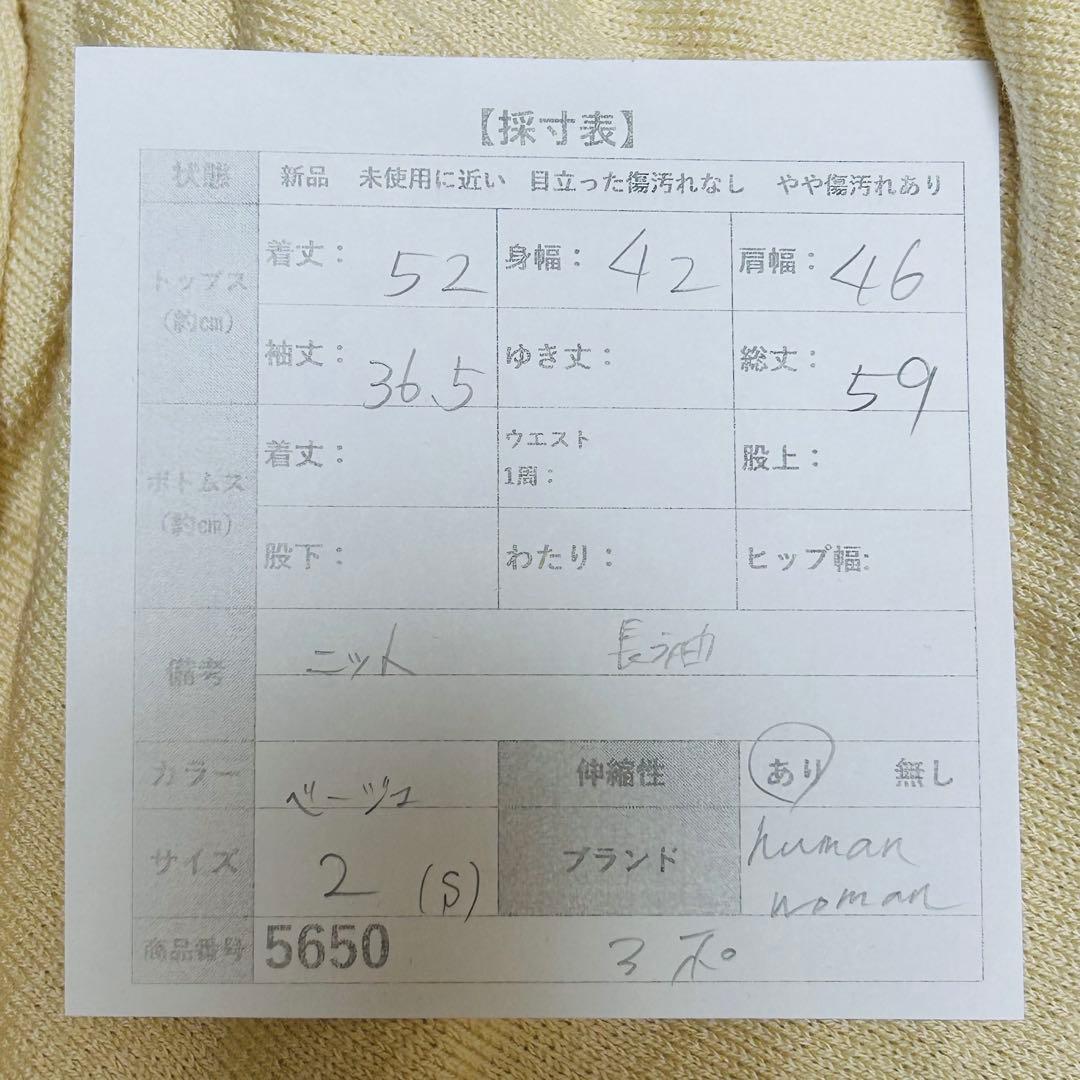 【採寸表】
状態 新品 未使用に近い 目立った傷汚れなし やや傷汚れあり
トップス(約cm) 着丈: 52 身幅: 42 肩幅: 46
袖丈: 36.5 ゆき丈: 総丈: 59
ボトムス(約cm) 着丈: ウエスト1周: 股上:
股下: わたり: ヒップ幅:
備考 ニット 長袖
カラー ベージュ 伸縮性 あり 無し
サイズ 2 (S) ブランド human woman
商品番号 5650 3